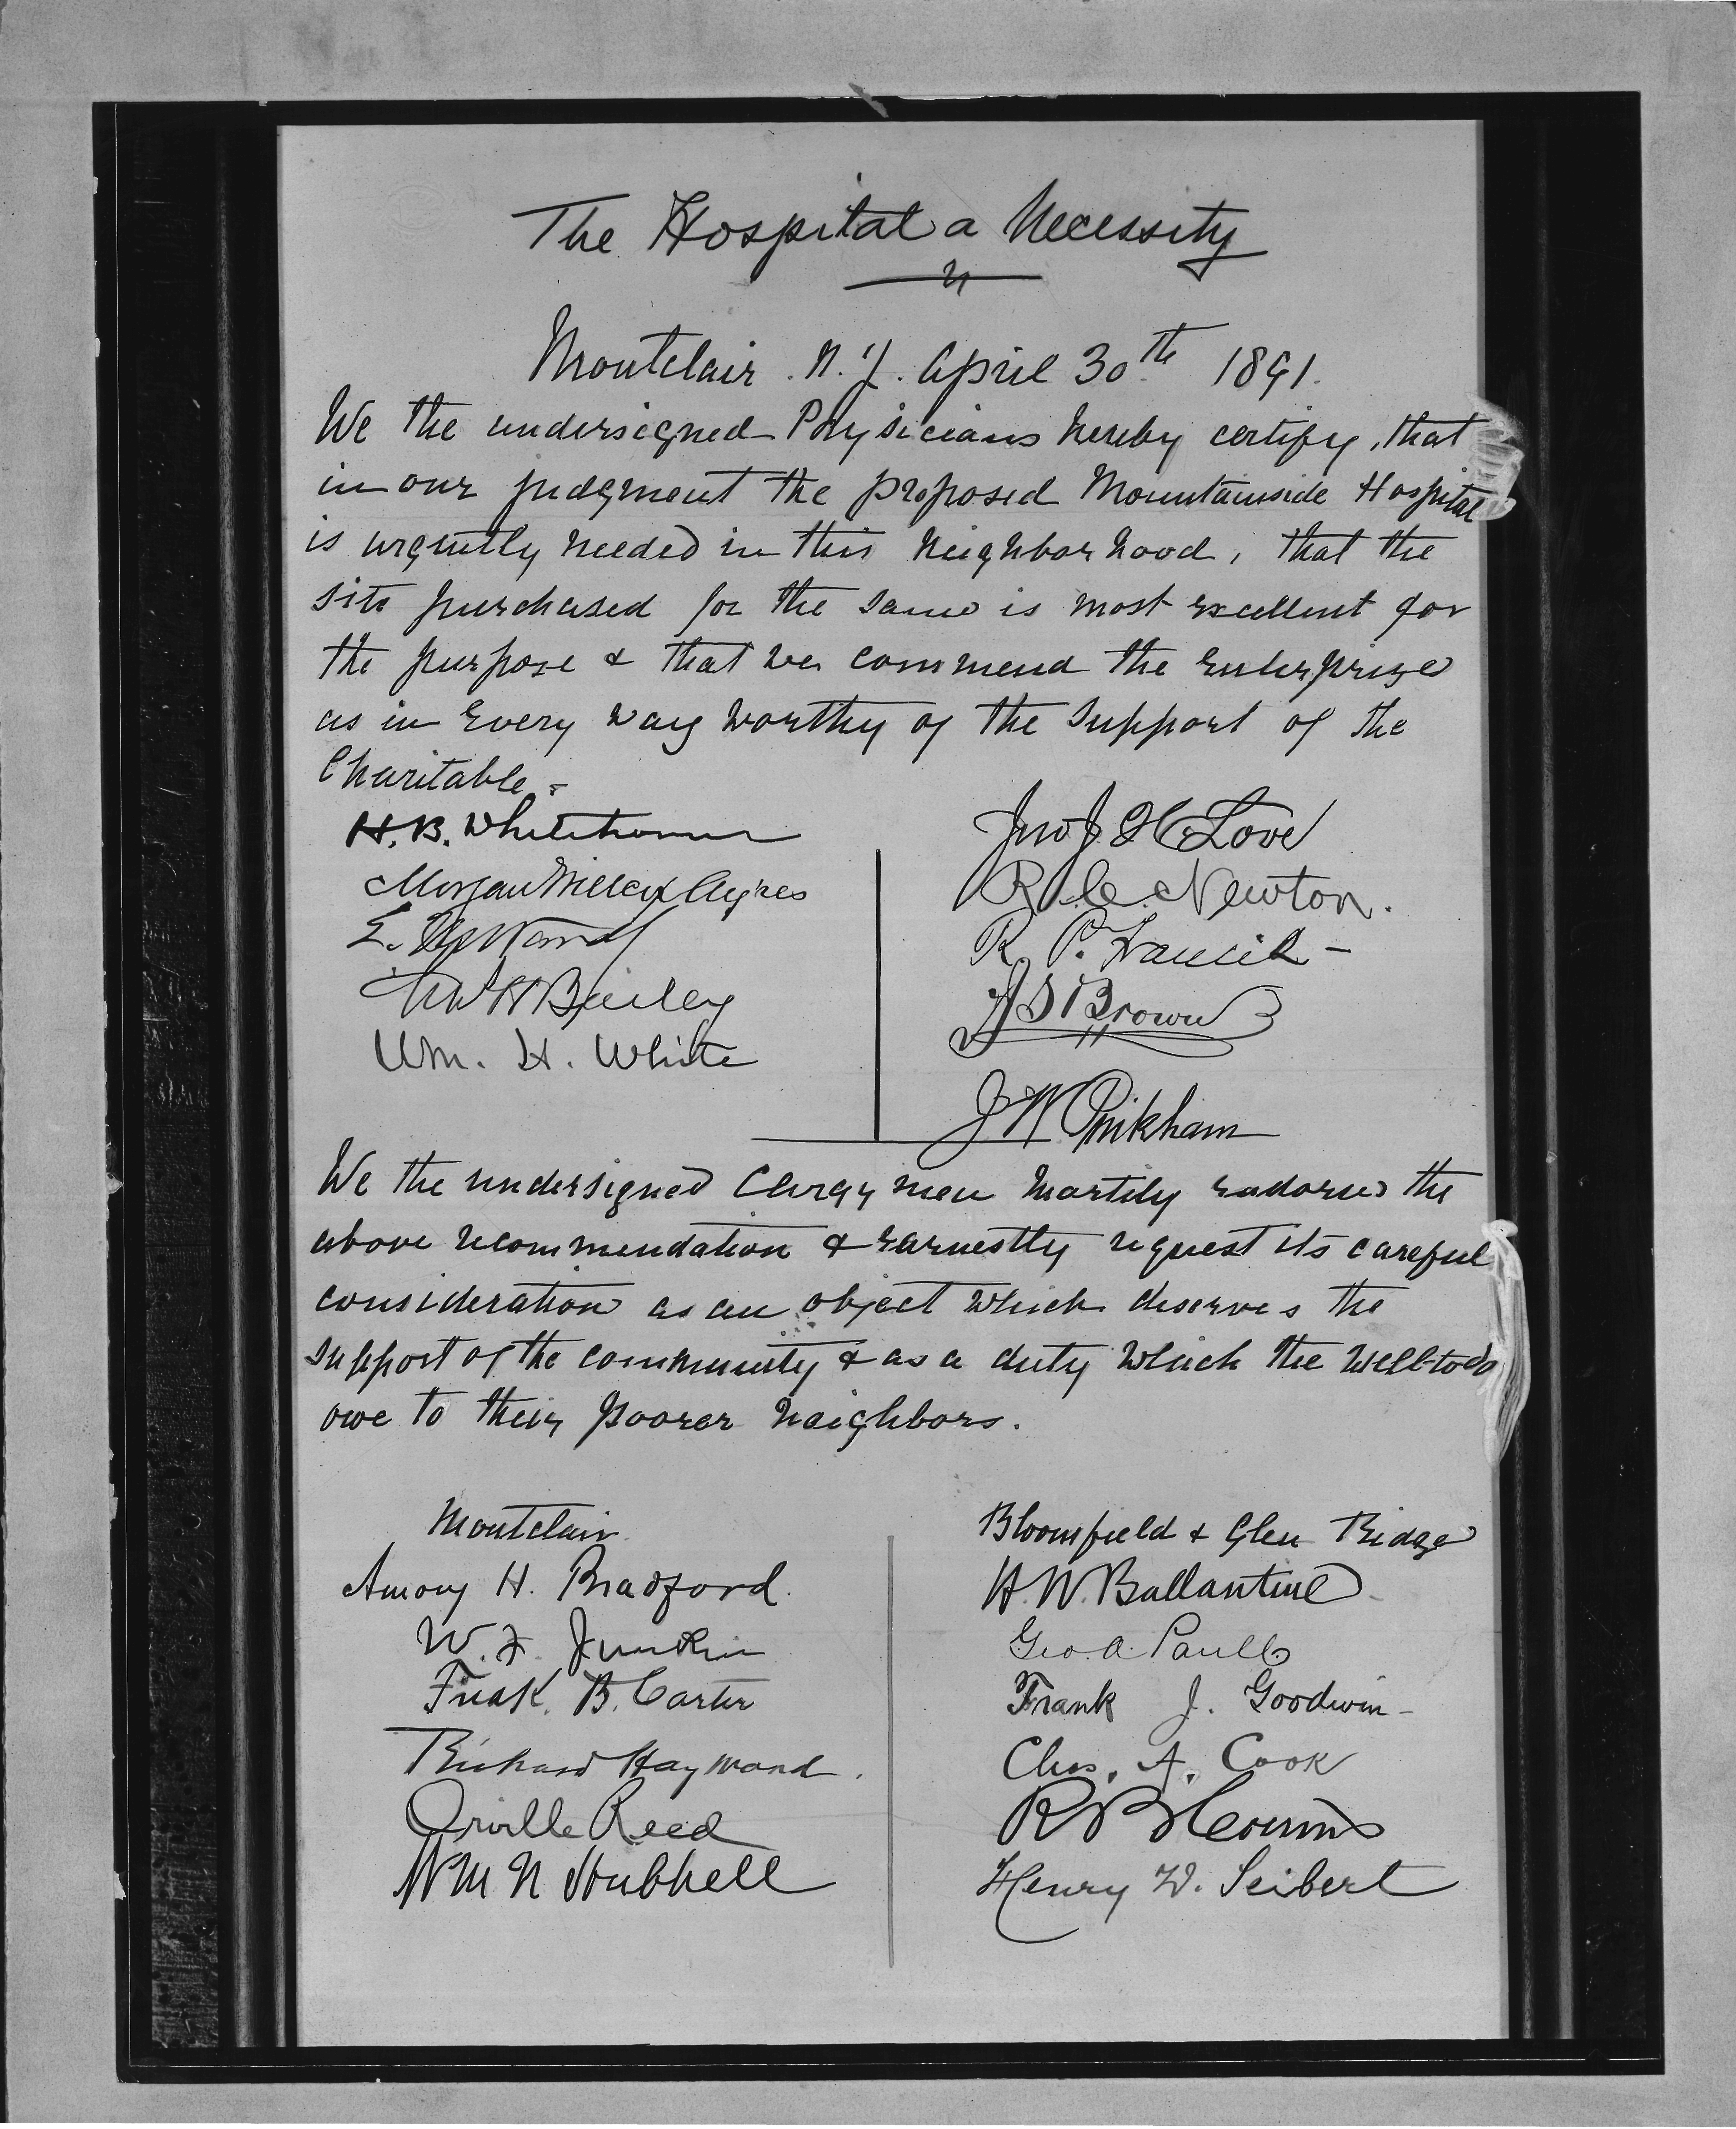 The Hospital a Necessity
Montclair. N.J. April 30th 1891.
We the undersigned Physicians hereby certify, that
in our judgment the proposed Mountainside Hospital
is urgently needed in this neighborhood, that the
site purchased for the same is most excellent for
the purpose & that we commend the enterprise
as in every way worthy of the support of the
Charitable.
H. B. Whitehorne
Morgan Willcox Ayres
E.
Bailey
Wm. H. White
Love
R. C. Newton.
R. P. Francis
Brown
J W Pinkham
We the undersigned Clergymen heartily endorse the
above recommendation & earnestly request its careful
consideration as an object which deserves the
support of the community & as a duty which the well-to do
owe to their poorer neighbors.
Montclair
Amory H. Bradford.
W. F. Junkin
Fredk. B. Carter
Richard Hayward.
Orville Reed
Wm N Hubbell
Bloomfield & Glen Ridge
H. W. Ballantine
Geo. A. Paull
Frank J. Goodwin
Chas. A. Cook
R B
Henry W. Seibert